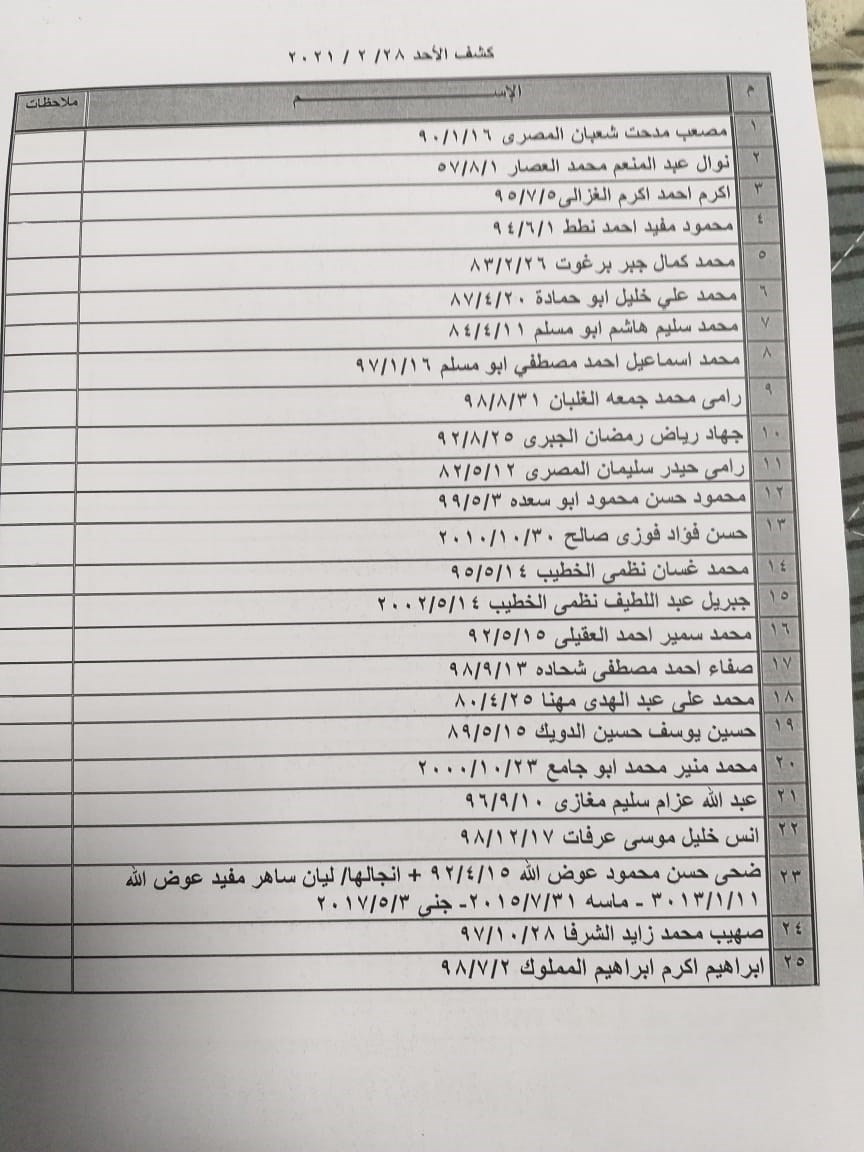 كشف الأحد ٢٨/ ٢ / ٢٠٢١
م الإســـــــــم ملاحظات
١ مصعب مدحت شعبان المصرى ٩٠/١/١٦
٢ نوال عبد المنعم محمد العصار ٥٧/٨/١
٣ اكرم احمد اكرم الغزالى ٩٥/٧/٥
٤ محمود مفيد احمد نطط ٩٤/٦/١
٥ محمد كمال جبر برغوت ٨٣/٢/٢٦
٦ محمد علي خليل ابو حمادة ٨٧/٤/٢٠
٧ محمد سليم هاشم ابو مسلم ٨٤/٤/١١
٨ محمد اسماعيل احمد مصطفي ابو مسلم ٩٧/١/١٦
٩ رامى محمد جمعه الغلبان ٩٨/٨/٣١
١٠ جهاد رياض رمضان الجبرى ٩٢/٨/٢٥
١١ رامي حيدر سليمان المصرى ٨٢/٥/١٢
١٢ محمود حسن محمود ابو سعده ٩٩/٥/٣
١٣ حسن فؤاد فوزى صالح ٢٠١٠/١٠/٣٠
١٤ محمد غسان نظمى الخطيب ٩٥/٥/١٤
١٥ جبريل عبد اللطيف نظمى الخطيب ٢٠٠٢/٥/١٤
١٦ محمد سمير احمد العقيلى ٩٢/٥/١٥
١٧ صفاء احمد مصطفى شحاده ٩٨/٩/١٣
١٨ محمد على عبد الهدى مهنا ٨٠/٤/٢٥
١٩ حسين يوسف حسين الدويك ٨٩/٥/١٥
٢٠ محمد منير محمد ابو جامع ٢٠٠٠/١٠/٢٣
٢١ عبد الله عزام سليم مغازى ٩٦/٩/١٠
٢٢ انس خليل موسى عرفات ٩٨/١٢/١٧
٢٣ ضحى حسن محمود عوض الله ٩٢/٤/١٥ + انجالها/ ليان ساهر مفيد عوض الله
٣٠١٣/١/١١ - ماسه ٢٠١٥/٧/٣١- جنى ٢٠١٧/٥/٣
٢٤ صهيب محمد زايد الشرفا ٩٧/١٠/٢٨
٢٥ ابراهيم اكرم ابراهيم المملوك ٩٨/٧/٢